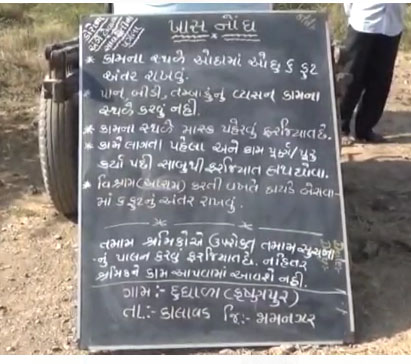 ખાસ નોંધ
* કામના સ્થળે ઓછામાં ઓછુ ૬ ફુટ
અંતર રાખવું.
* પાન, બીડી, તમ્બાકુનું વ્યસન કામના
સ્થળે કરવું નહી.
* કામના સ્થળે માસ્ક પહેરવું ફરજિયાત છે.
* કામે લાગતા પહેલા અને કામ પુર્ણ/પુરૂ
કર્યા પછી સાબુથી ફરજિયાત હાથ ધોવા.
* વિશ્રામ (આરામ) કરતી વખતે છાયડે બેસવા-
માં ૬ ફુટનું અંતર રાખવું.
તમામ શ્રમિકોએ ઉપરોક્ત તમામ સુચના
નું પાલન કરવું ફરજિયાત છે. નહિતર
શ્રમિકને કામ આપવામાં આવશે નહી.
ગામ:- દુધાળા (કૃષ્ણપુર)
તા.:- કાલાવડ જિ:- જામનગર